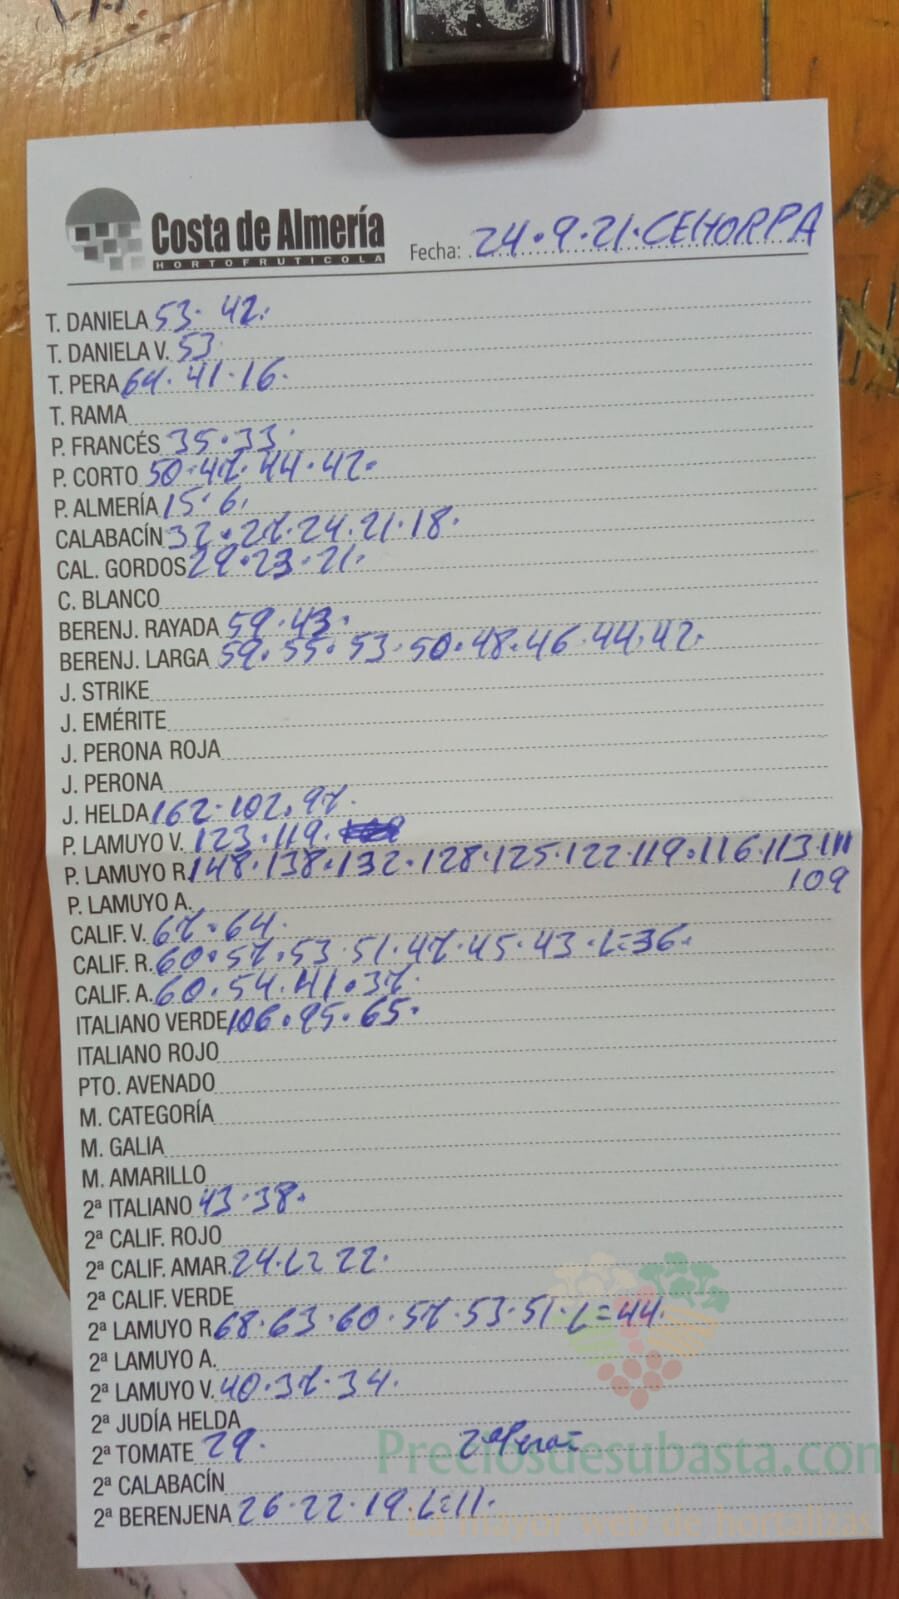 Costa de Almería
HORTOFRUTICOLA
Fecha: 24.9.21.CEHORPA
T. DANIELA 53. 42.
T. DANIELA V. 53
T. PERA 64. 41.16.
T. RAMA
P. FRANCÉS 35.33.
P. CORTO 50.47.44.42.
P. ALMERÍA 15.6.
CALABACÍN 32.27.24.21.18.
CAL. GORDOS 29.23.21.
C. BLANCO
BERENJ. RAYADA 59.43.
BERENJ. LARGA 59.55.53.50.48.46.44.42.
J. STRIKE
J. EMÉRITE
J. PERONA ROJA
J. PERONA
J. HELDA 162.102.97.
P. LAMUYO V. 123.119.
P. LAMUYO R. 148.138.132.128.125.122.119.116.113.111
109
P. LAMUYO A.
CALIF. V. 67.64.
CALIF. R. 60.57.53.51.47.45.43.L=36.
CALIF. A. 60.54.41.37.
ITALIANO VERDE 106.95.65.
ITALIANO ROJO
PTO. AVENADO
M. CATEGORÍA
M. GALIA
M. AMARILLO
2ª ITALIANO 43.38.
2ª CALIF. ROJO
2ª CALIF. AMAR. 24.L=22.
2ª CALIF. VERDE
2ª LAMUYO R. 68.63.60.57.53.51.L=44.
2ª LAMUYO A.
2ª LAMUYO V. 40.37.34.
2ª JUDÍA HELDA
2ª TOMATE 29.
Preciosdesubasta.com
2ª CALABACÍN
2ª BERENJENA 26.22.19.L=11.
La mayor web de hortalizas